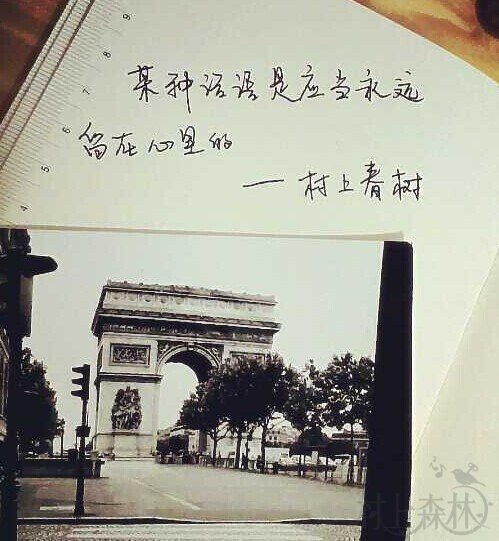 某种话语是应当永远
留在心里的
一 村上春树
9
8
7
6
5
4
村上森林